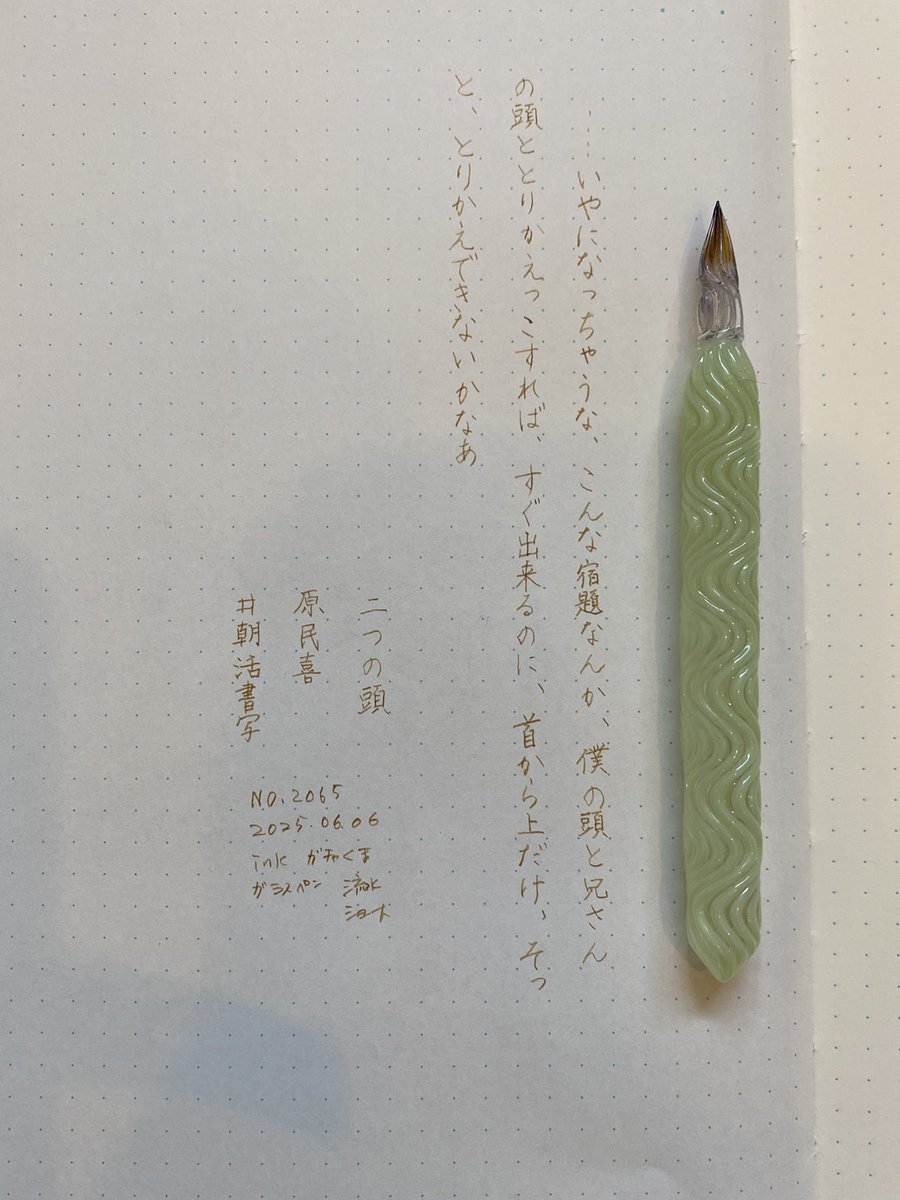 ……いやになっちゃうな、こんな宿題なんか、僕の頭と兄さん
の頭ととりかえっこすれば、すぐ出来るのに、首から上だけ、そっ
と、とりかえできないかなあ
二つの頭
原民喜
#朝活書写
NO.2065
2025.06.06
ink がちゃくま
ガラスペン 流水
ショート